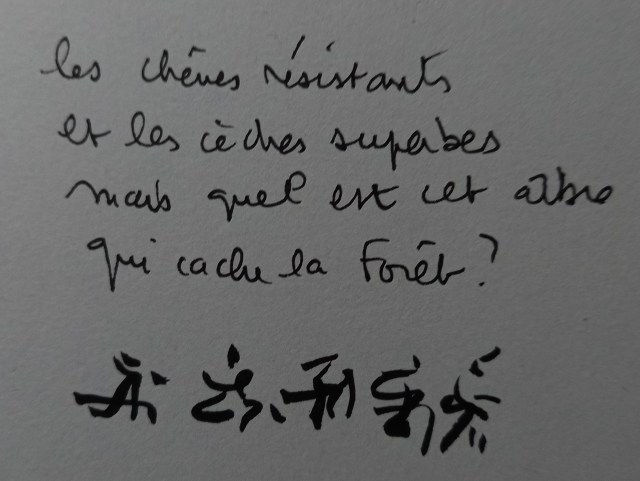 les chênes résistants
et les cèdres superbes
mais quel est cet arbre
qui cache la forêt ?